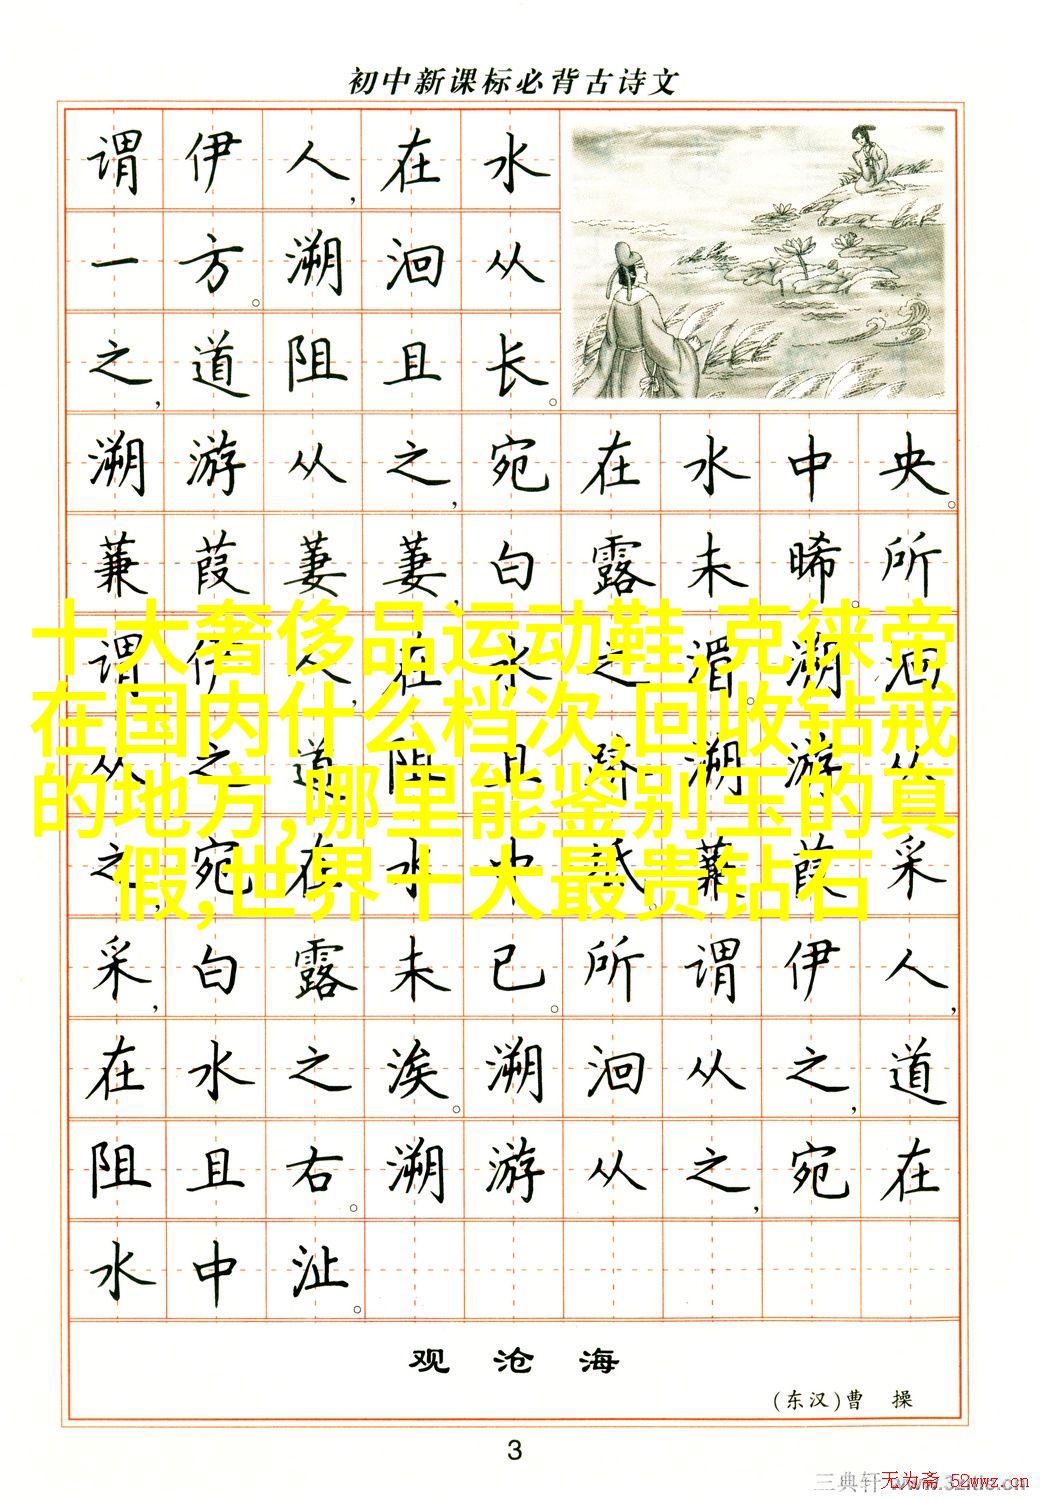 初中新课标必背古诗文
谓伊人,在水
一方。溯洄从
之,道阻且长。
溯游从之,宛在水中央。
蒹葭萋萋,白露未晞。所
谓伊人,在水之湄。溯洄
从之,道阻且跻。溯游从
之,宛在水中坻。蒹葭采
采,白露未已。所谓伊人,
在水之涘。溯洄从之,道
阻且右。溯游从之,宛在
水中沚。
十大奢侈品运动鞋,克徕帝
在国内什么档次,回收钻戒
的地方,哪里能鉴别玉的真
假,世界十大最贵钻石
观沧海
(东汉)曹 操
3
三典轩
无为斋 52wwz.cn